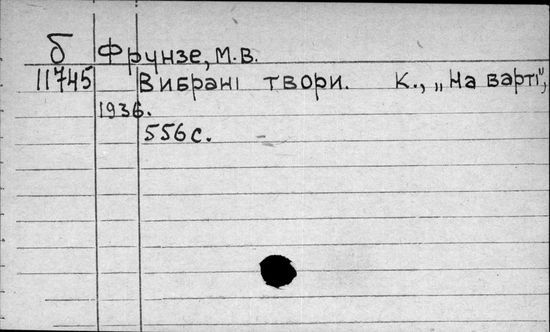 б Фрунзе, М.В.
11745 Вибрані твори. К., „На варті",
1936.
556 с.